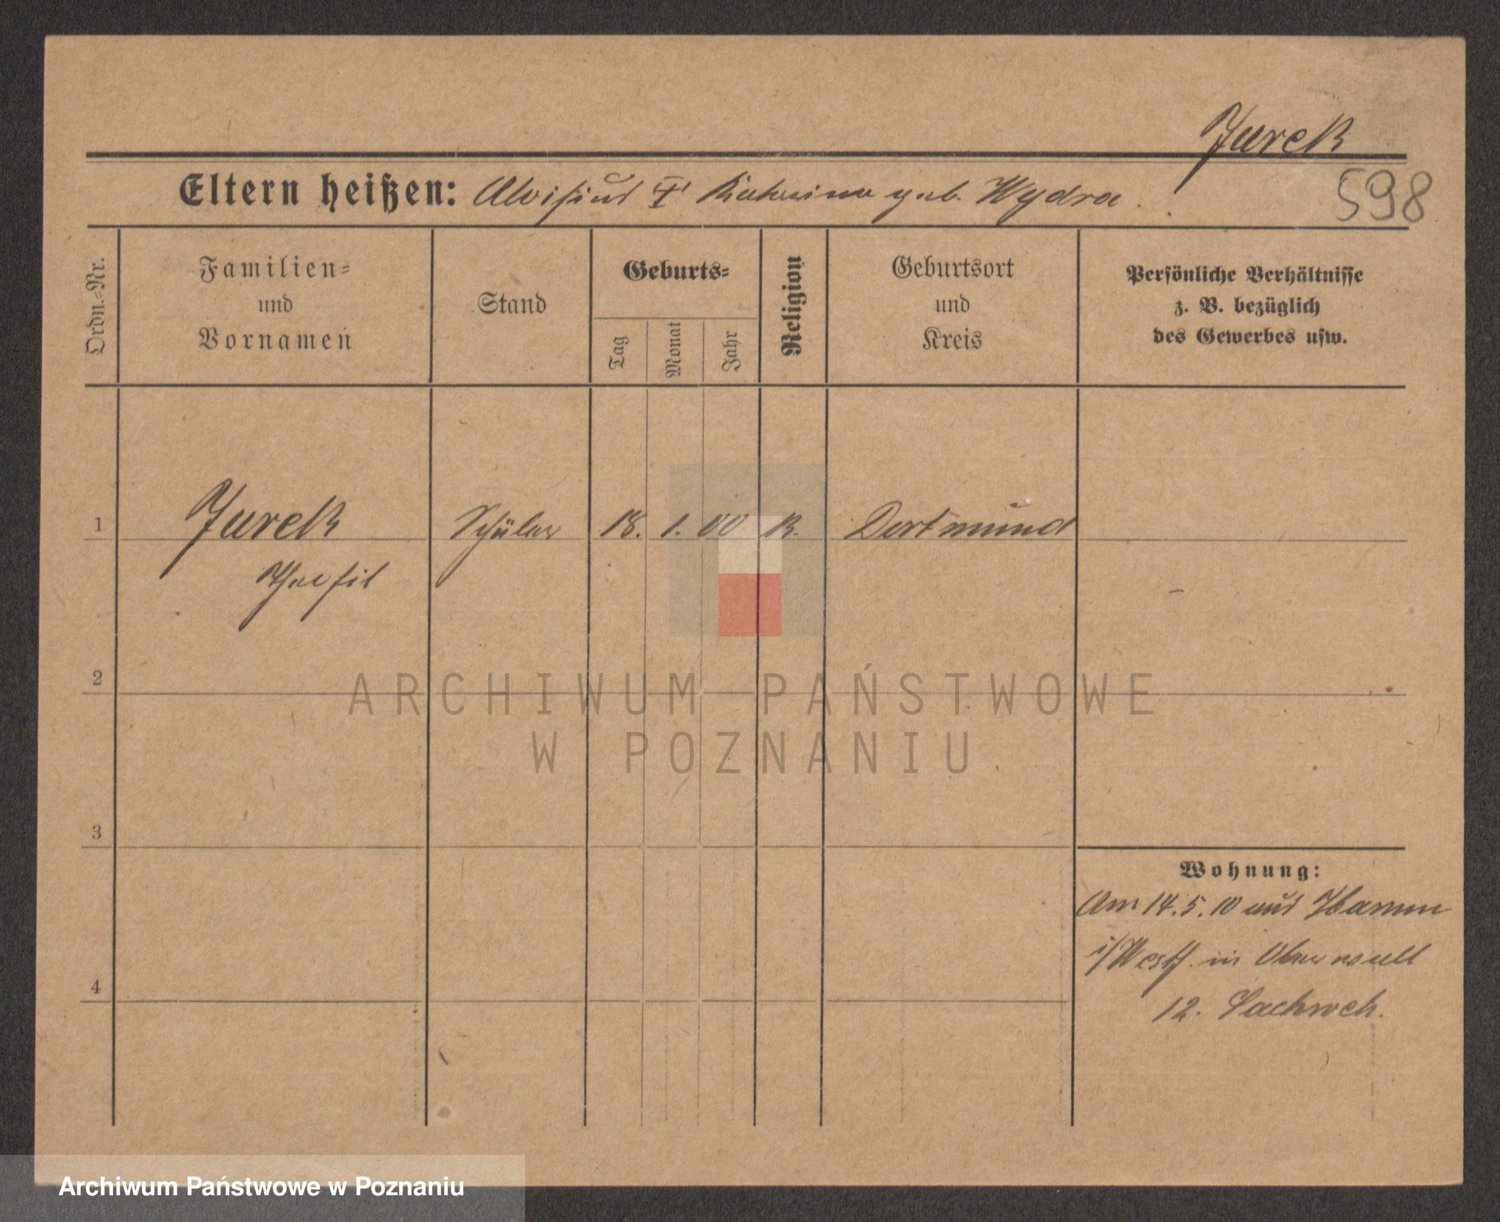 Jurek
598
Eltern heißen: Aloisius † Katharina geb. Wydra
Ordn.-Nr.
Familien-
und
Vornamen
Stand
Geburts-
Tag
Monat
Jahr
Religion
Geburtsort
und
Kreis
Persönliche Verhältnisse
z. B. bezüglich
des Gewerbes usw.
1
Jurek
Schüler
18. 1. 00
K.
Dortmund
2
3
4
Wohnung:
Am 14.5.10 aus Hamm
i/Westf. in
12.
ARCHIWUM PAŃSTWOWE
W POZNANIU
Archiwum Państwowe w Poznaniu